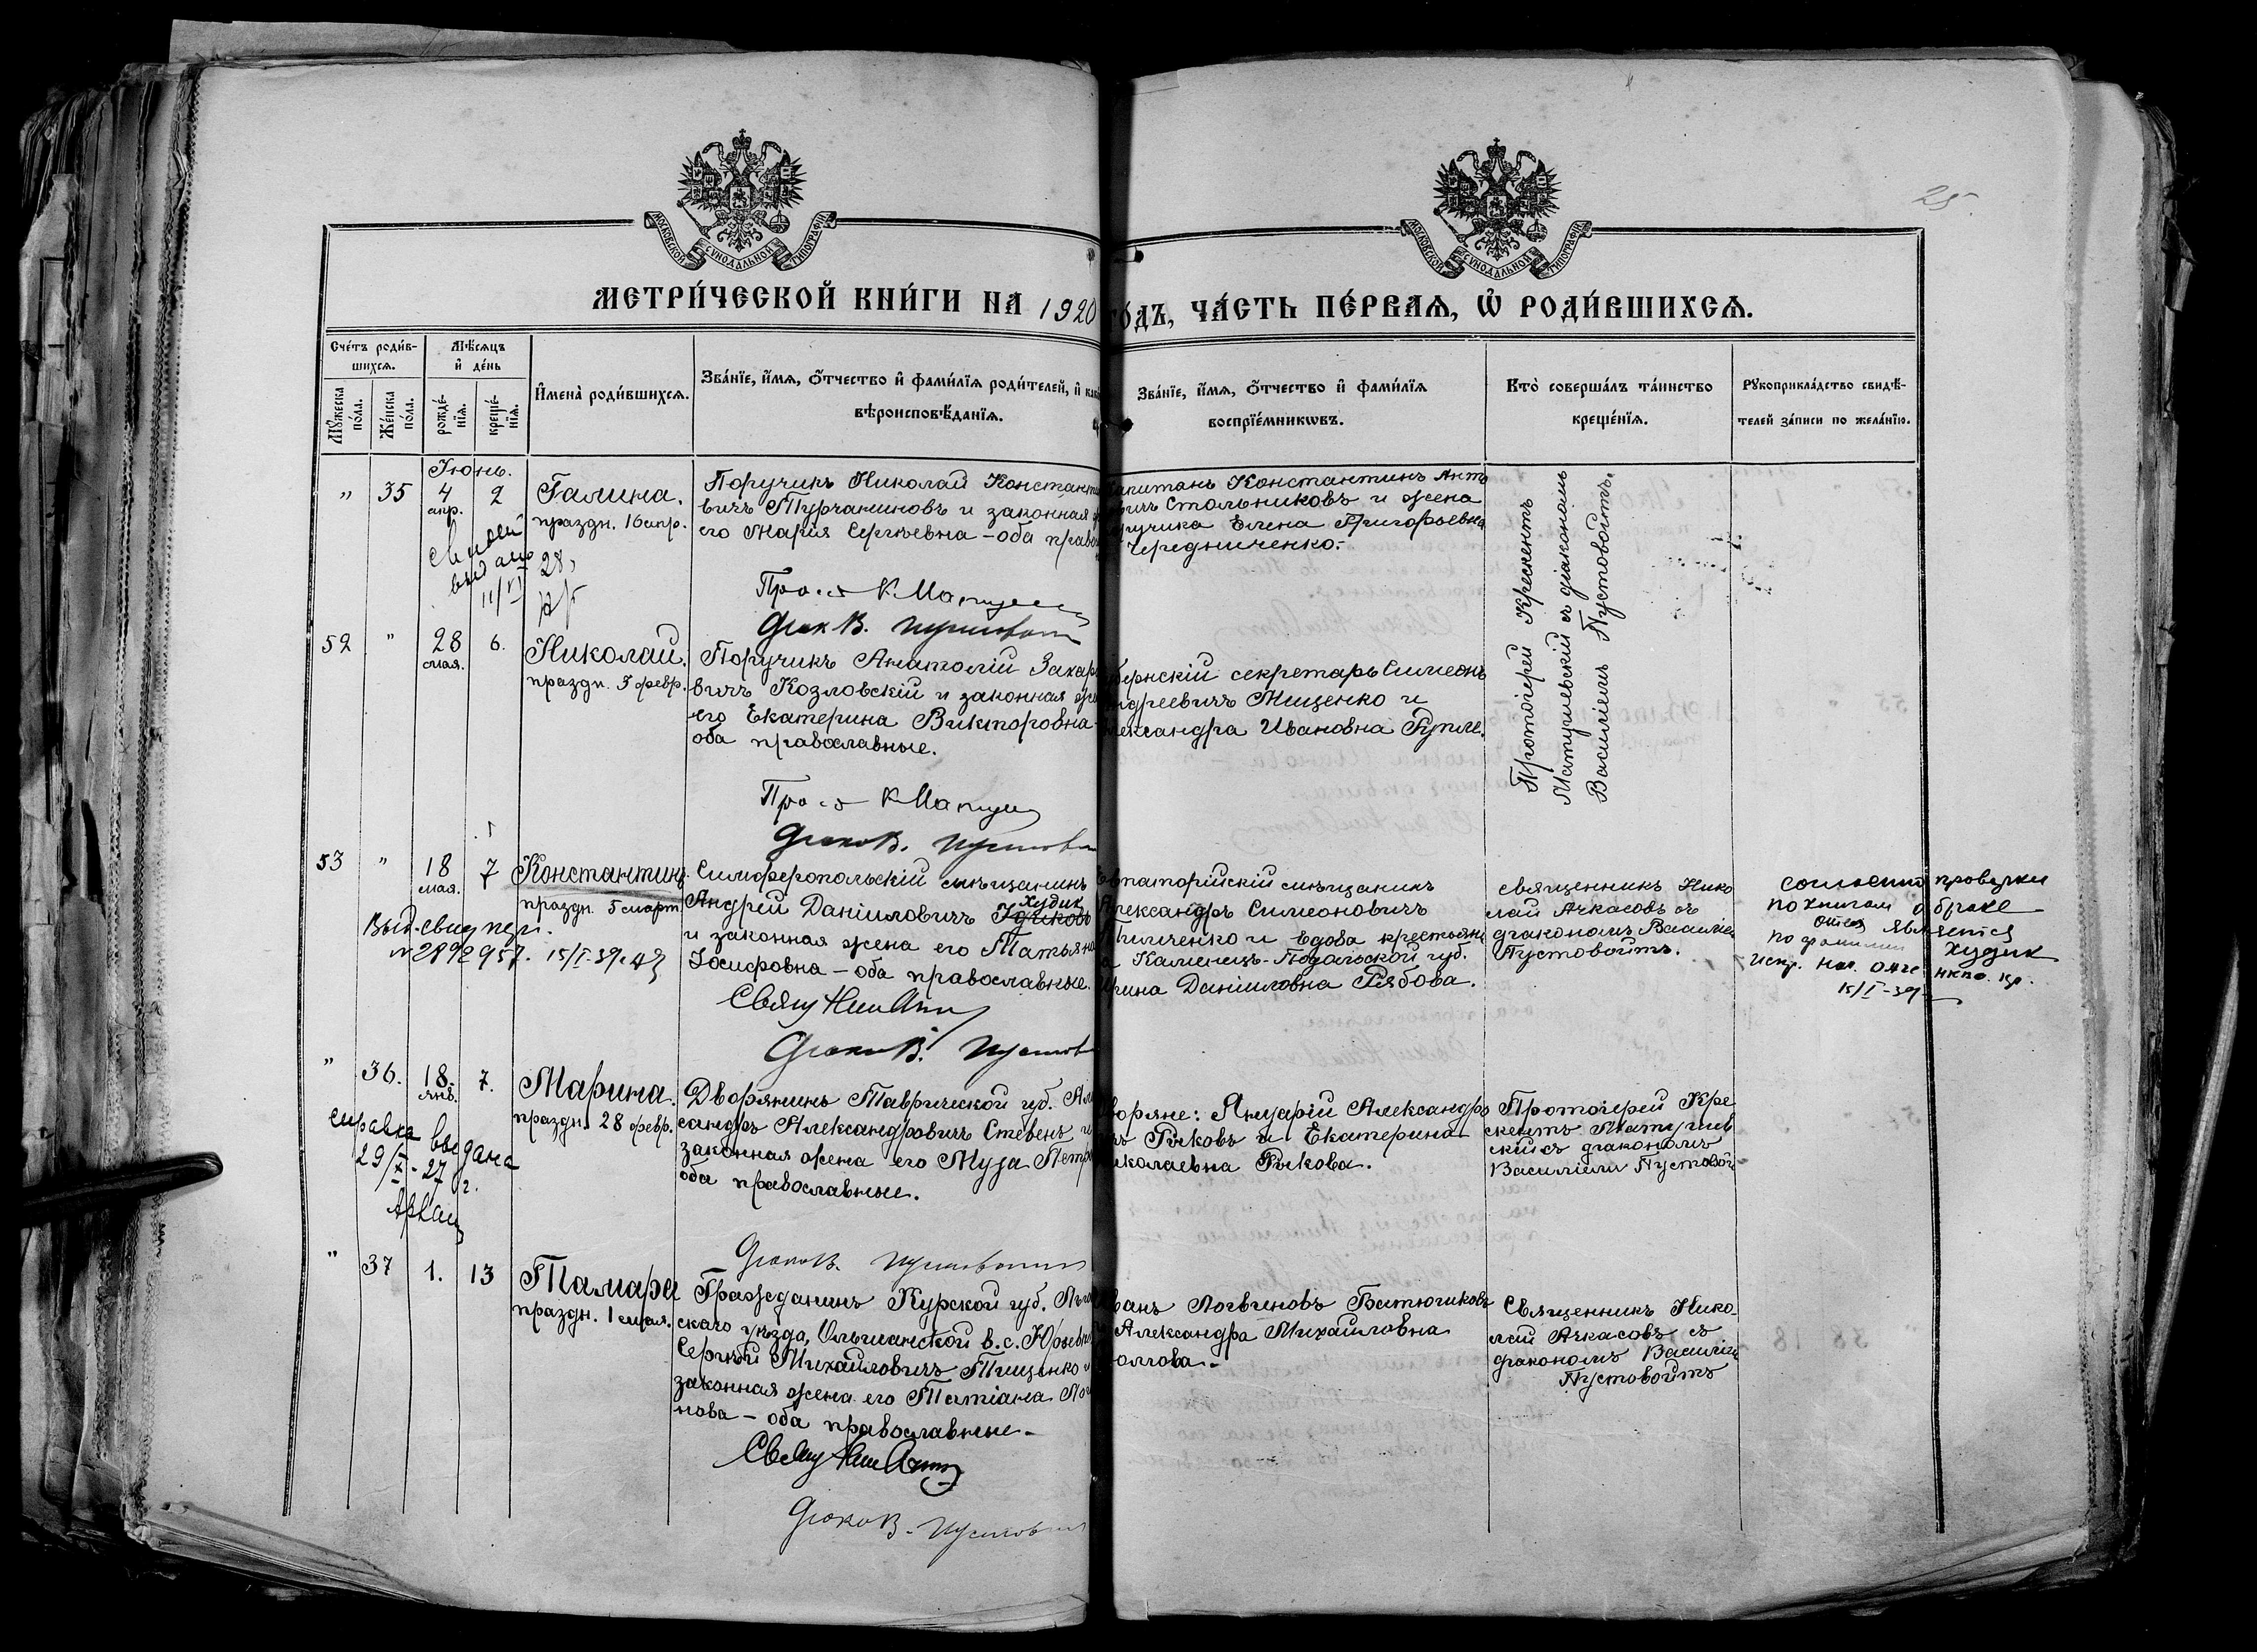 25.
МОСКОВСКОЙ СѴНОДАЛЬНОЙ ТИПОГРАФІИ
МОСКОВСКОЙ СѴНОДАЛЬНОЙ ТИПОГРАФІИ
МЕТРИ́ЧЕСКОЙ КНИ́ГИ НА 1920
го́дъ, ЧА́СТЬ ПЕ́РВАѦ, Ѡ РОДИ́ВШИХСѦ.
Сче́тъ роди́в-
шихсѧ.
Мꙋжеска
по́ла.
Же́нска
по́ла.
Мѣ́сѧцъ
и҆ де́нь
рожде́-
нїѧ.
креще́-
нїѧ.
И҆мена̀ роди́вшихсѧ.
Зва́нїе, и҆́мѧ, ѻ҆́тчество и҆ фами́лїѧ роди́телей, и҆
вѣроисповѣ́данїѧ.
Зва́нїе, и҆́мѧ, ѻ҆́тчество и҆ фами́лїѧ
воспрїе́мникѡвъ.
Кто̀ соверша́лъ та́инство
креще́нїѧ.
Рꙋкоприкла́дство свидѣ́-
телей за́писи по жела́нїю.
Іюнь.
" 35 4 апр. 2
Галина.
праздн. 16 апр.
Поручикъ Николай Константи
вичъ Турчаниновъ и законная
его Марія Сергѣевна – оба право
капитанъ Константинъ Анто
вичъ Стольниковъ и жена
поручика Елена Григорьевна
Чередниченко.
Протоіерей Крескентъ
Матушевскій съ діакономъ
Василіемъ Пустовойтъ.
выдано
11/VI 28,
52 " 28 мая. 6.
Николай.
праздн. 3 февр.
Поручикъ Анатолій Захар
вичъ Козловскій и законная же
его Екатерина Викторовна –
оба православные.
губернскій секретарь Симеонъ
Андреевичъ Мищенко и
Александра Ивановна
53 " 18 мая. 7
Константинъ.
праздн. 5 март.
Симферопольскій мѣщанинъ
Андрей Даніиловичъ
Худик
и законная жена его Татьяна
Іосифовна – оба православные.
Евпаторійскій мѣщанинъ
Александръ Симеоновичъ
и вдова крестьяни
а Каменецъ-Подольской губ.
Ирина Даніиловна Рябова.
священникъ Нико
лай Ачкасовъ съ
діакономъ Василіе
Пустовойтъ.
согласно проверки
по книгам о браке
отец является
по фамилии Худик
15/I-39
Выд. свид.
№ 2892957. 15/I-39.
" 36. 18. янв. 7.
Марина.
праздн. 28 февр.
Дворянинъ Таврической губ. Але
сандръ Александровичъ Стевенъ и
законная жена его Муза Петро
оба православные.
Дворяне: Януарій Александро
вичъ Рыковъ и Екатерина
Николаевна Рыкова.
Протоіерей Кре
скентъ Матушев
скій съ діакономъ
Василіемъ Пустовойт
справка выдана
29/X-27 г.
" 37 1. 13
Тамара
праздн. 1 мая.
Гражданинъ Курской губ. Льго
скаго уѣзда, Ольшанской в. с. Юрьевки
Сергѣй Михайловичъ Тищенко и
законная жена его Татіана Лог
нова – оба православные.
Иванъ Логвиновъ Батючиковъ
и Александра Михайловна
Священникъ Нико-
лай Ачкасовъ съ
діакономъ Василіе
Пустовойтъ